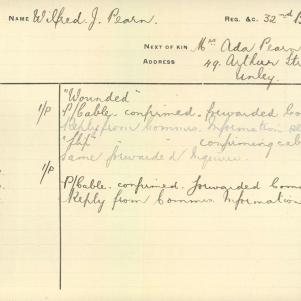 NAME Wilfred J. Pearn. REG. &C. 32nd B
NEXT OF KIN Mrs Ada Pearn
ADDRESS 49. Arthur Str
Unley.
"Wounded"
1/P P/Cable. confirmed. forwarded Co
Reply from Commrs. Information
" confirming cab
Same forwarded Inquirer
1/P P/Cable. confirmed. forwarded Com
Reply from Commrs. Information